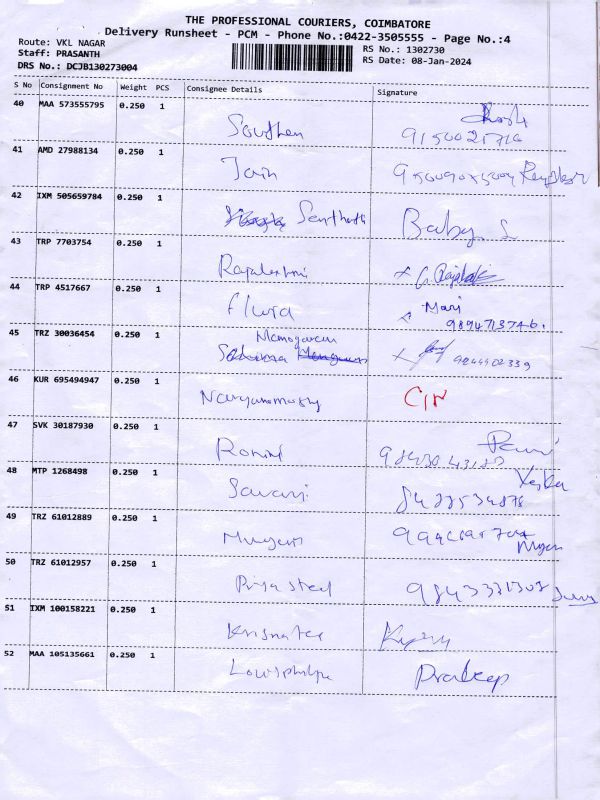 THE PROFESSIONAL COURIERS, COIMBATORE
Delivery Runsheet - PCM - Phone No.:0422-3505555 - Page No.:4
Route: VKL NAGAR
RS No.: 1302730
Staff: PRASANTH
RS Date: 08-Jan-2024
DRS No.: DCJB130273004
S No Consignment No Weight PCS Consignee Details Signature
40 MAA 573555795 0.250 1
Southern
41 AMD 27988134 0.250 1
Jain
42 IXM 505659784 0.250 1
Santhosh Baby. S
43 TRP 7703754 0.250 1
Rajalakshmi
44 TRP 4517667 0.250 1
Fluid Mari
9894713746.
45 TRZ 30036454 0.250 1
46 KUR 695494947 0.250 1
Narayanamoorthy
47 SVK 30187930 0.250 1
48 MTP 1268498 0.250 1
49 TRZ 61012889 0.250 1
Murugan
50 TRZ 61012957 0.250 1
Priya steel
51 IXM 100158221 0.250 1
52 MAA 105135661 0.250 1
Pradeep